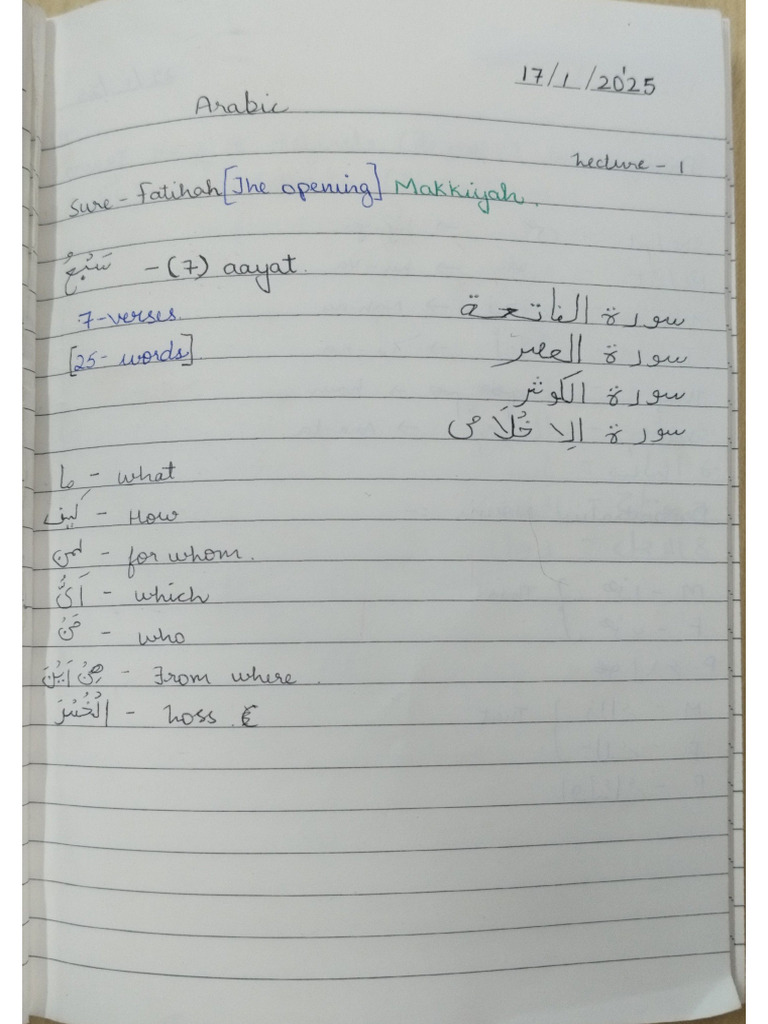 17/1/2025
Arabic
Lecture - 1
Sure - Fatihah [The opening] Makkiyah.
سَبْعُ - (7) aayat.
7-verses.
[25- words]
سورة الفاتحة
سورة العصر
سورة الكوثر
سورة الاخْلَاص
ما - what
كيف - How
لمن - for whom.
اَيُّ - which
مَنْ - who
مِنْ اَيْنَ - From where.
الْخُسْرَ - Loss